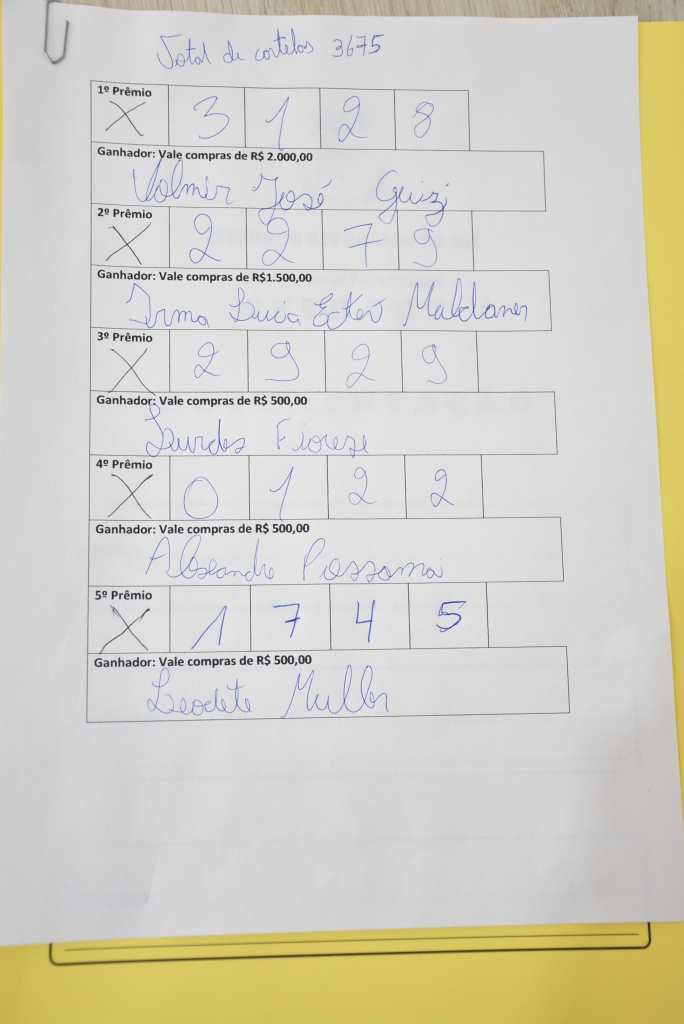 Total de cartelas 3675
1º Prêmio
X 3 1 2 8
Ganhador: Vale compras de R$ 2.000,00
Volmir José Guizi
2º Prêmio
X 2 2 7 9
Ganhador: Vale compras de R$1.500,00
Irma Lucia Eckert Maldaner
3º Prêmio
X 2 9 2 9
Ganhador: Vale compras de R$ 500,00
Lurdes Fiorese
4º Prêmio
X 0 1 2 2
Ganhador: Vale compras de R$ 500,00
Possamai
5º Prêmio
X 1 7 4 5
Ganhador: Vale compras de R$ 500,00
Leodete Muller